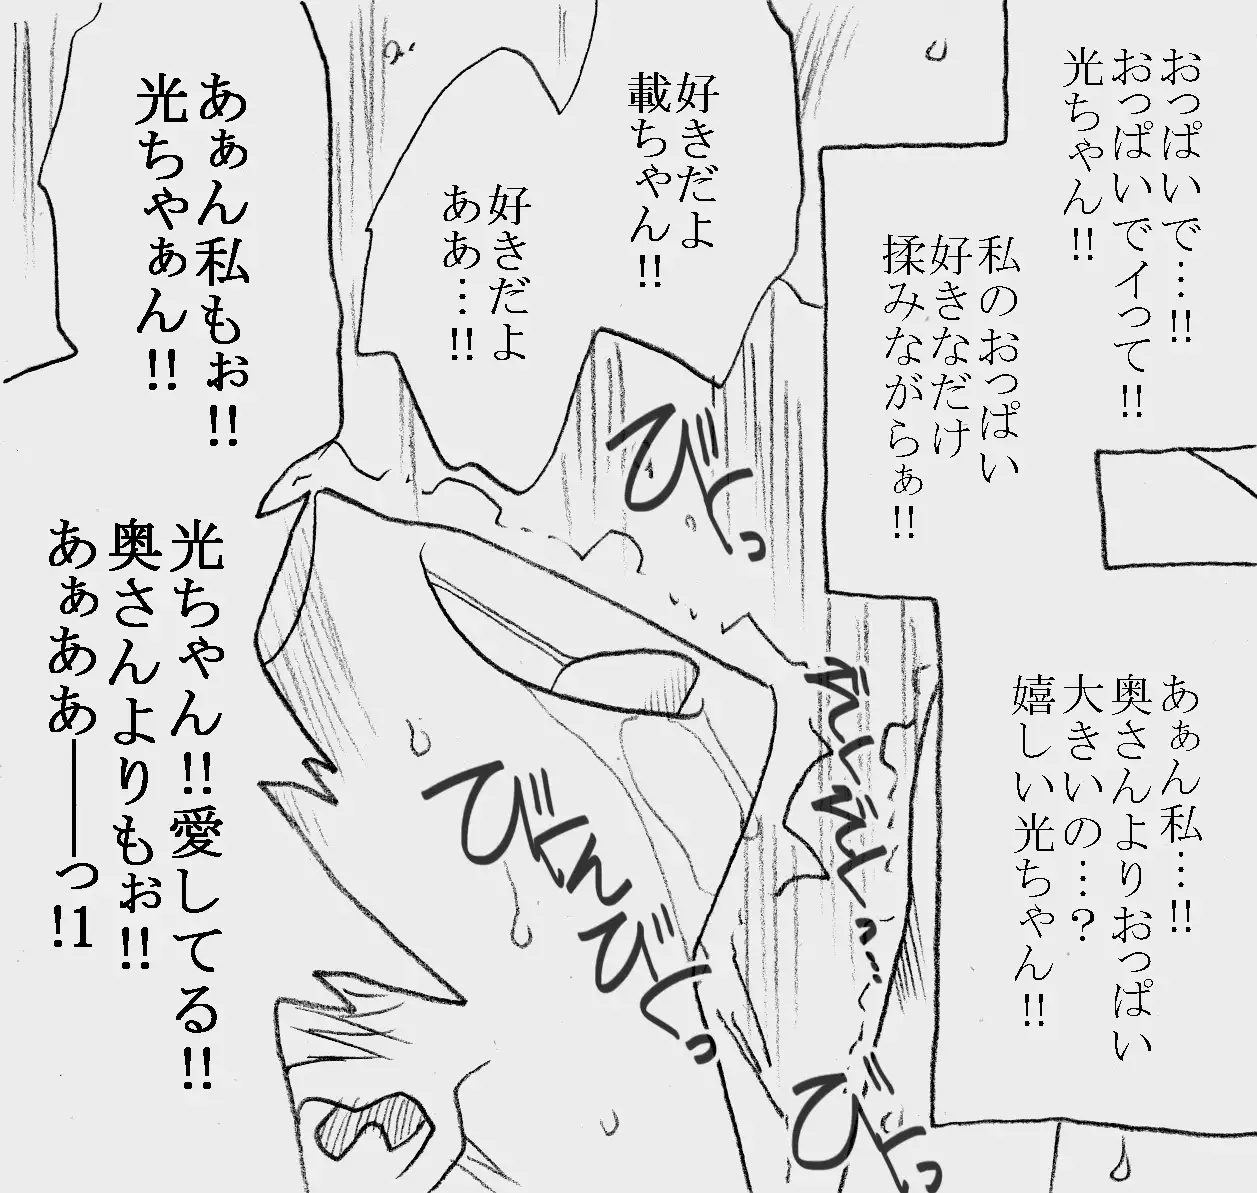 おっぱいで…!!
おっぱいでイって!!
光ちゃん!!
私のおっぱい
好きなだけ
揉みながらぁ!!
あぁん私…!!
奥さんよりおっぱい
大きいの…?
嬉しい光ちゃん!!
好きだよ
載ちゃん!!
好きだよ
ああ…!!
びくっ
びくんびくっ
びくっ
あぁん私もぉ!!
光ちゃぁん!!
光ちゃん!!愛してる!!
奥さんよりもぉ!!
あぁああ――っ!1